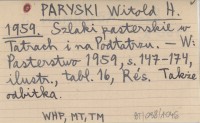 PARYSKI Witold H.
1959. Szlaki pasterskie w
Tatrach i na Podtatrzu. – W:
Pasterstwo 1959, s. 147–174,
ilustr., tabl. 16, Rés. Także
odbitka.
WHP, MT, TM